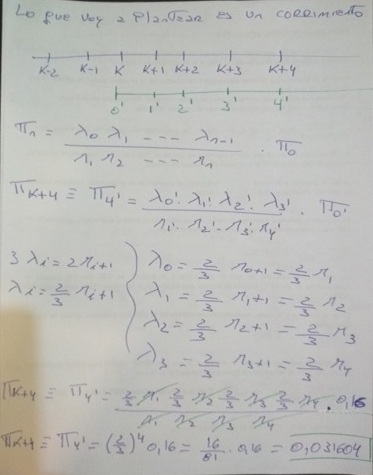 Lo que voy a plantear es un corrimiento
K-2 K-1 K K+1 K+2 K+3 K+4
0' 1' 2' 3' 4'
Πn = λ0 λ1 --- λn-1 / μ1 μ2 --- μn · Π0
ΠK+4 ≡ Π4' = λ0' λ1' λ2' λ3' / μ1' μ2' μ3' μ4' · Π0'
3 λi = 2μi+1
λi = 2/3 μi+1
λ0 = 2/3 μ0+1 = 2/3 μ1
λ1 = 2/3 μ1+1 = 2/3 μ2
λ2 = 2/3 μ2+1 = 2/3 μ3
λ3 = 2/3 μ3+1 = 2/3 μ4
ΠK+4 ≡ Π4' = 2/3 μ1 2/3 μ2 2/3 μ3 2/3 μ4 / μ1 μ2 μ3 μ4 · 0,16
ΠK+4 ≡ Π4' = (2/3)^4 0,16 = 16/81 · 0,16 = 0,031604